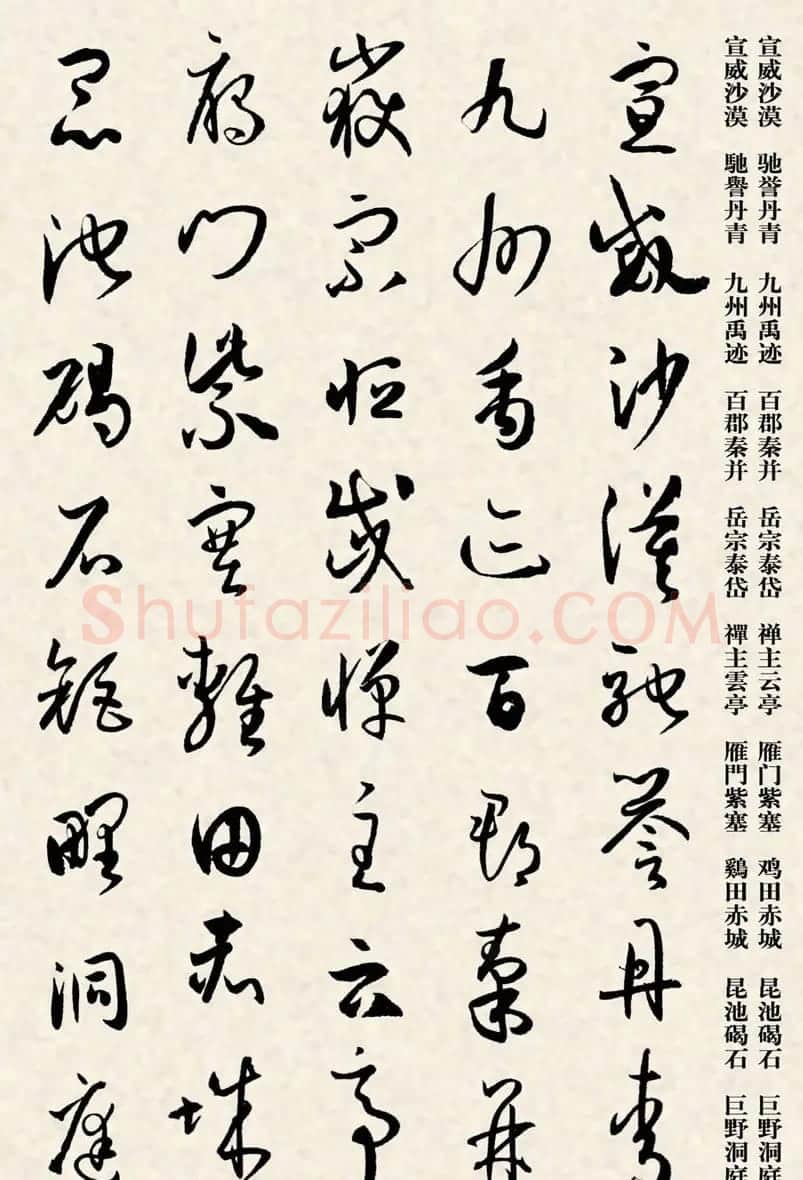 宣威沙漠 驰誉丹青 九州禹迹 百郡秦并 岳宗泰岱 禅主云亭 雁门紫塞 鸡田赤城 昆池碣石 巨野洞庭
宣威沙漠 馳譽丹青 九州禹迹 百郡秦并 岳宗泰岱 禪主雲亭 雁門紫塞 鷄田赤城 昆池碣石 巨野洞庭
宣威沙漠馳譽丹青
九州禹迹百郡秦并
嶽宗恒岱禪主云亭
雁門紫塞雞田赤城
昆池碣石鉅野洞庭
Shufaziliao.COM